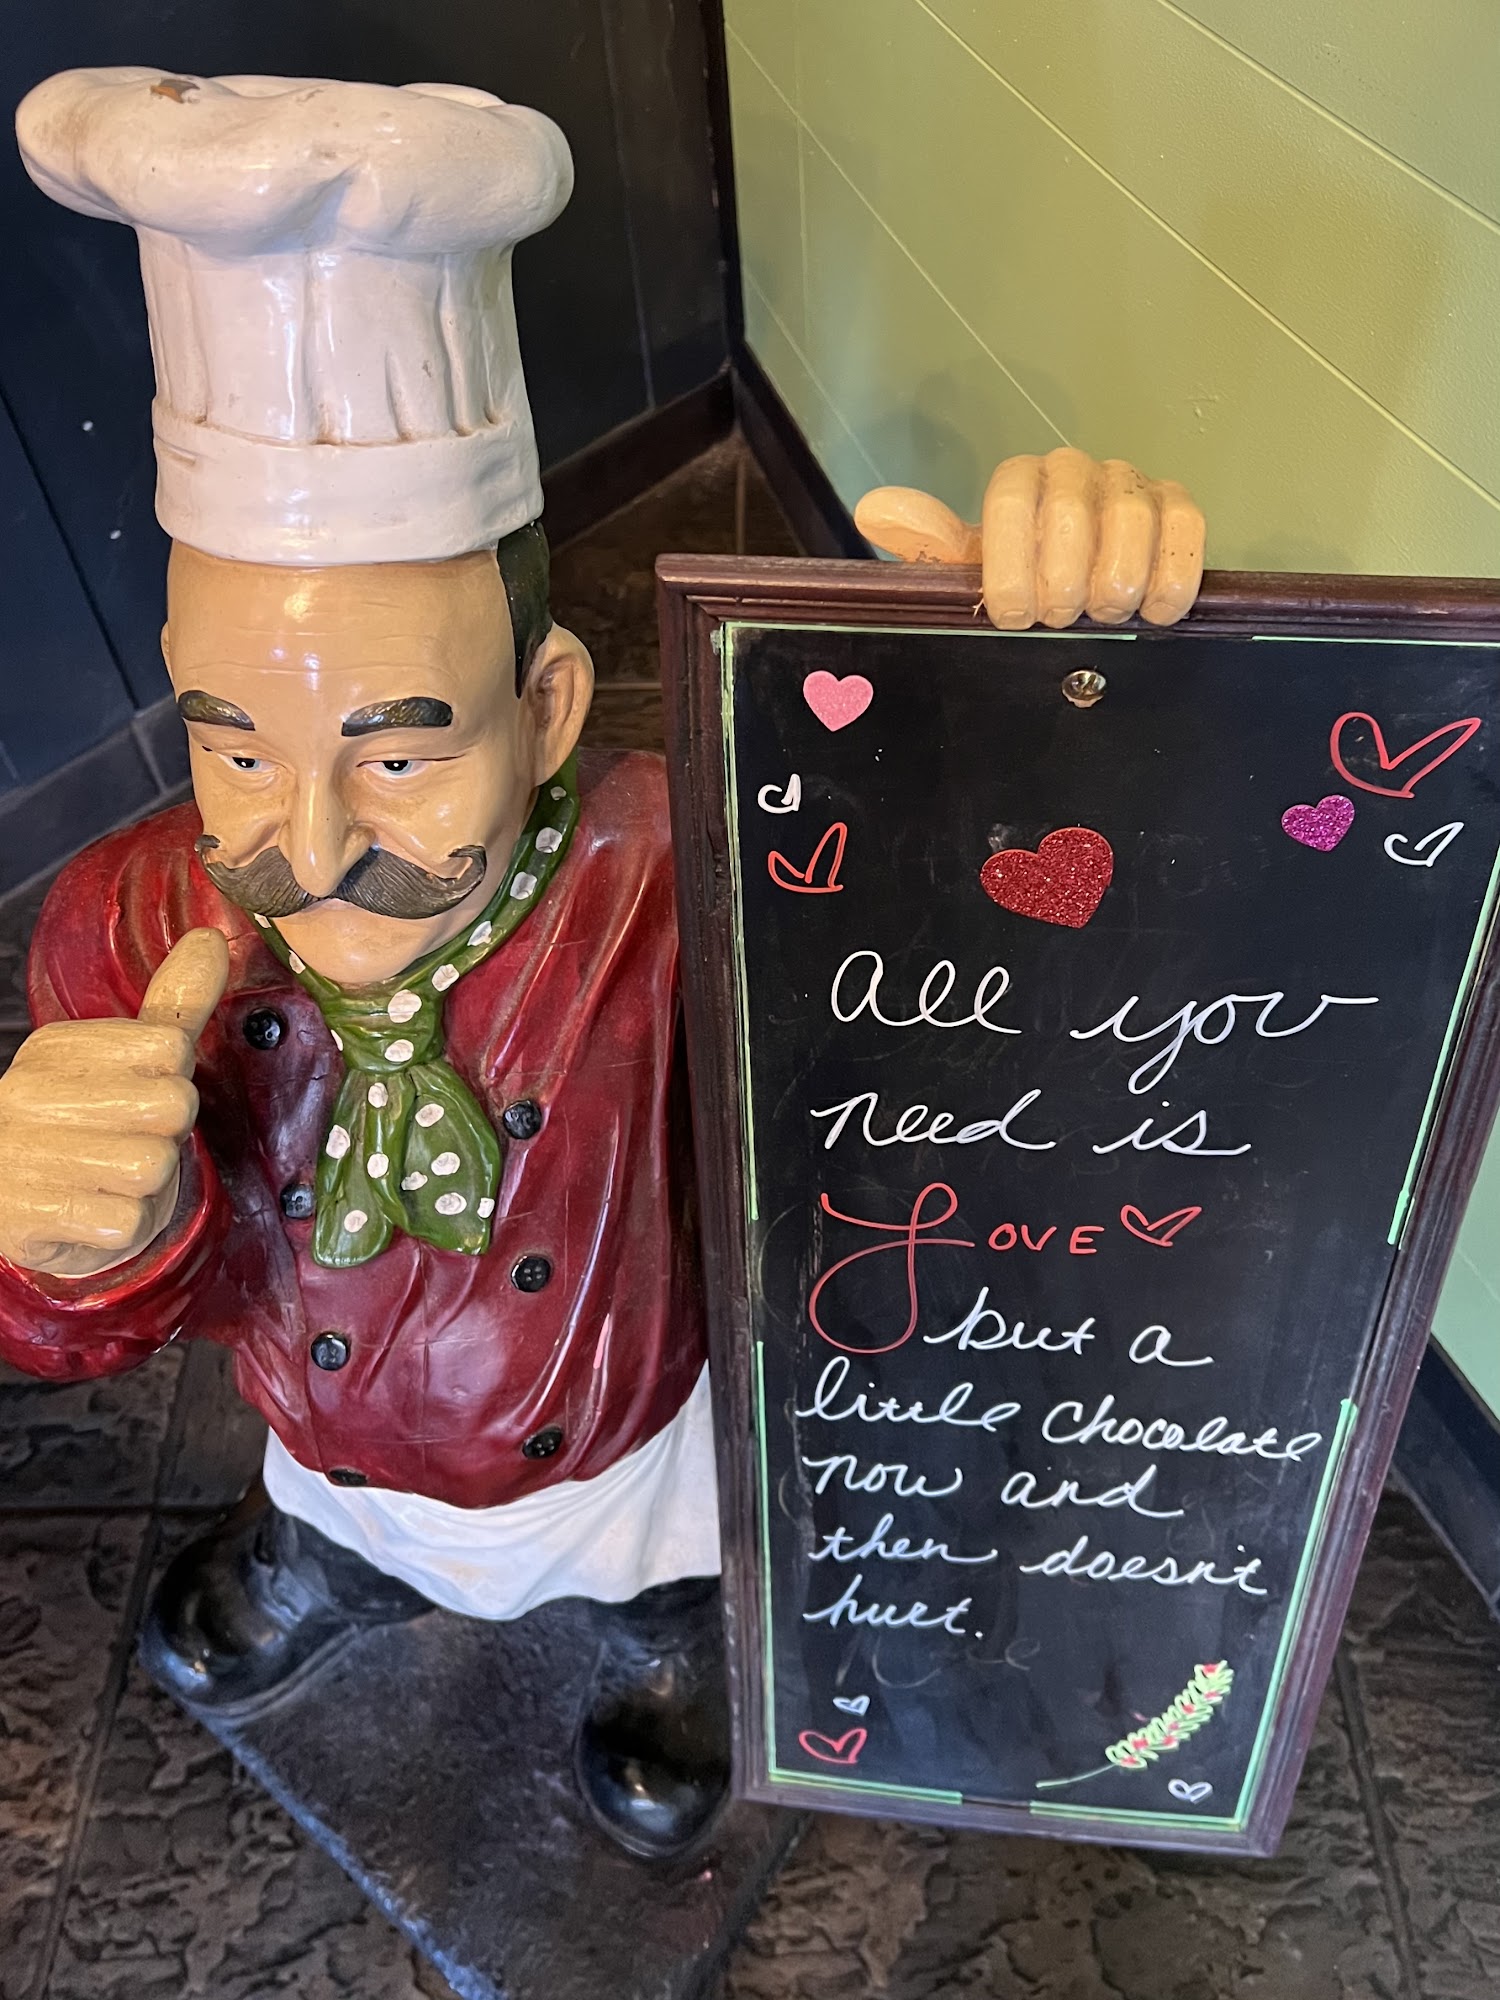 All you
need is
LOVE
but a
little chocolate
now and
then doesn't
hurt.